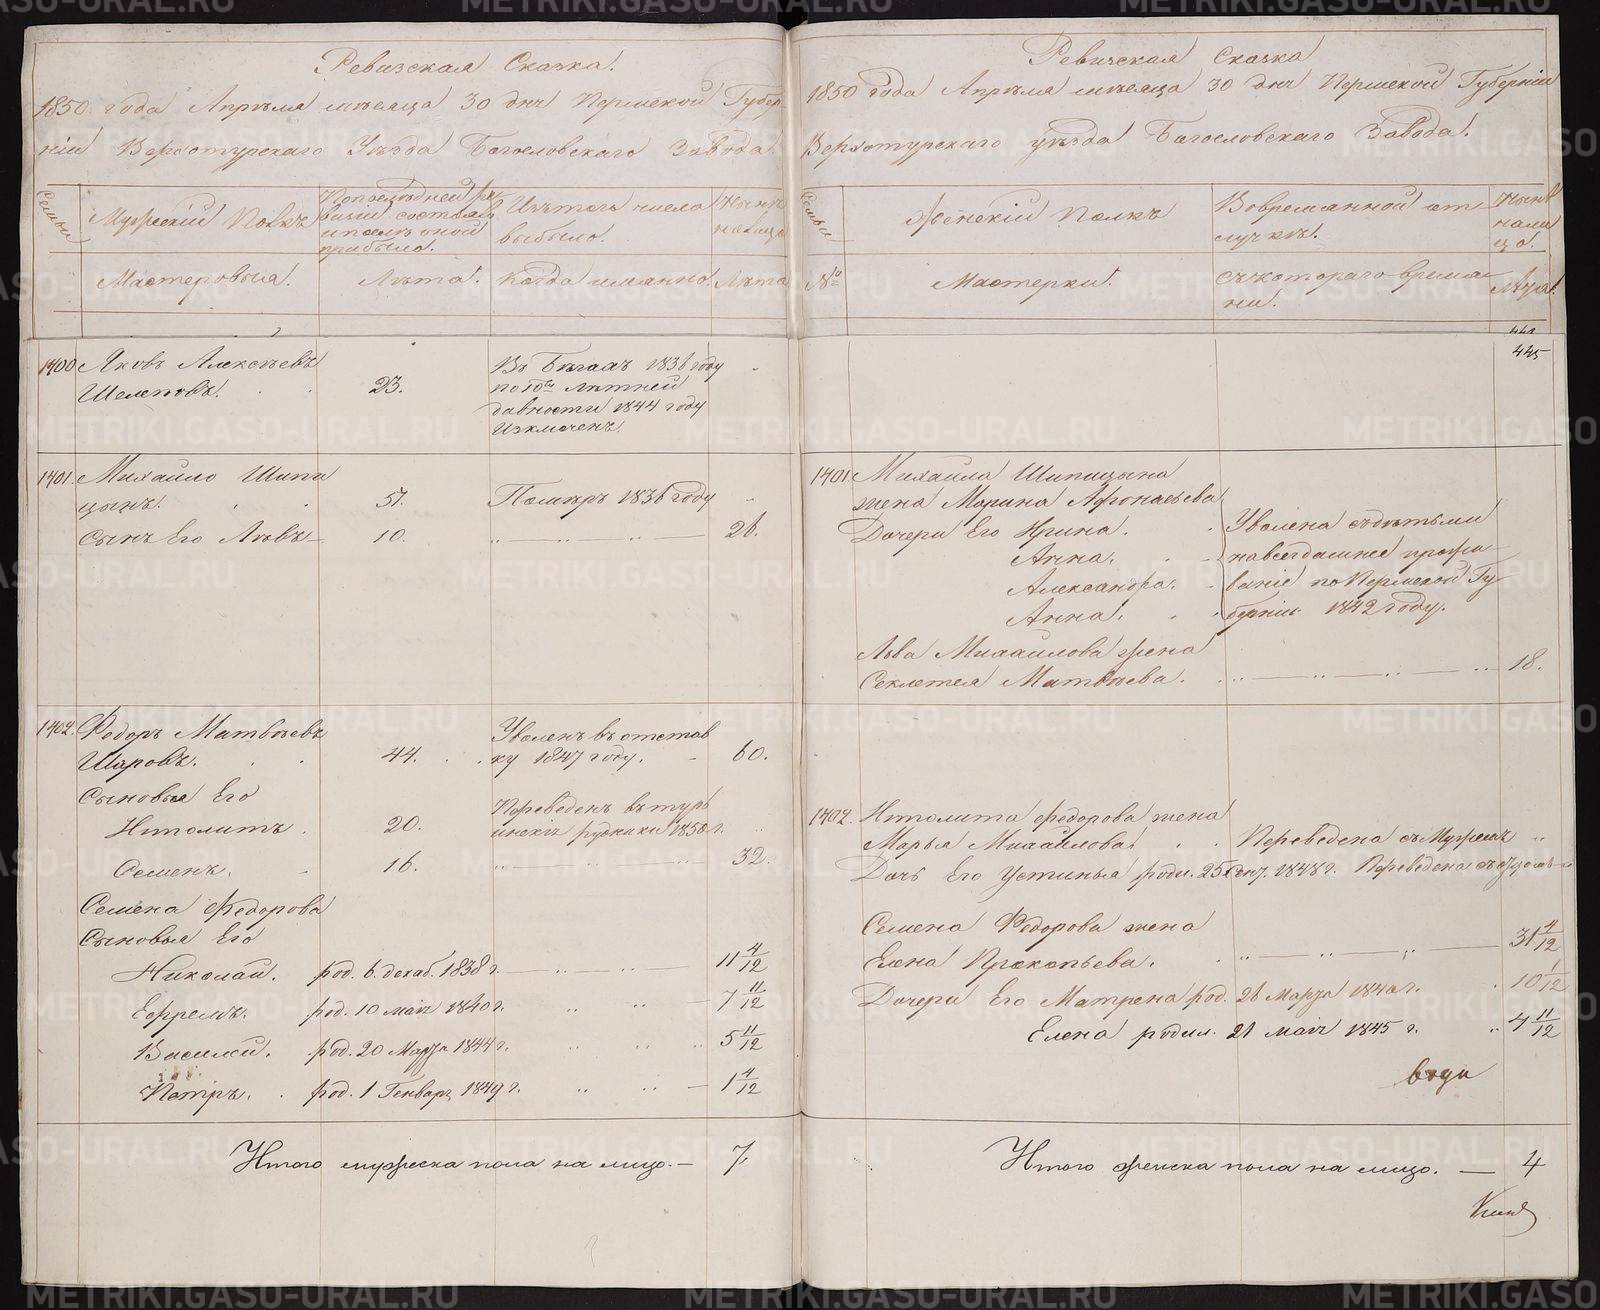 Ревизская Сказка.
1850 года Апрѣля мѣсяца 30 дня Пермской Губер-
ніи Верхотурскаго Уѣзда Богословскаго Завода.
Семьи
Мужескій Полъ
По последней ре
визіи состояло
и после оной
прибыло.
Изъ того числа
выбыло.
Нынѣ
на лицо
Мастеровыя.
Лѣта.
Когда именно.
Лѣта
1400 Яковъ Алексѣевъ
Шелеповъ. 23.
Въ Бѣгахъ 1836 году
по 10ти Лѣтней
давности 1844 году
Изключенъ.
1401 Михайло Шипи
цынъ. 51. Померъ 1836 году
Сынъ Его Левъ 10. 26.
1402. Федоръ Матвѣевъ
Шаровъ. 44.
Уволенъ въ отстав
ку 1847 году. 60.
Сыновья Его
Иполитъ 20.
Переведенъ въ Турь
инскія рудники 1850 г.
Семенъ. 16. 32.
Семена Федорова
Сыновья Его
Николай. род. 6 декаб. 1838 г. 11 4/12
Ефремъ. род. 10 маія 1840 г. 7 11/12
Василій. род. 20 Марта 1844 г. 5 11/12
Петръ. род. 1 Генваря 1849 г. 1 4/12
Итого мужеска пола на лицо. — 7
Ревизская Сказка
1850 года Апрѣля мѣсяца 30 дня Пермской Губерніи
Верхотурскаго уѣзда Богословскаго Завода.
Семьи
Женскій Полъ
Во временной от
лучкѣ.
Нынѣ
на ли
цо.
№
Мастерки.
Съ котораго време
ни.
Лѣта.
445
1401 Михайла Шипицына
жена Марина Афонасьева
Дочери Его Ирина.
Анна.
Александра.
Анна.
Уволена съ дѣтьми
на всегдашнее прожи
ваніе по Пермской Гу
берніи 1842 году.
Льва Михайлова жена
Секлетея Матвѣева. 18.
1402. Иполита Федорова жена
Марья Михайлова Переведена съ Мужемъ
Дочь Его Устинья родил. 25 1848 г. Переведена съ
Семена Федорова жена
Елена Прокопьева. 31 4/12
Дочери Его Матрена род. 26 Марта 1840 г. 10 1/12
Елена родил. 21 маія 1845 г. 4 11/12
Итого женска пола на лицо. — 4
METRIKI.GASO-URAL.RU